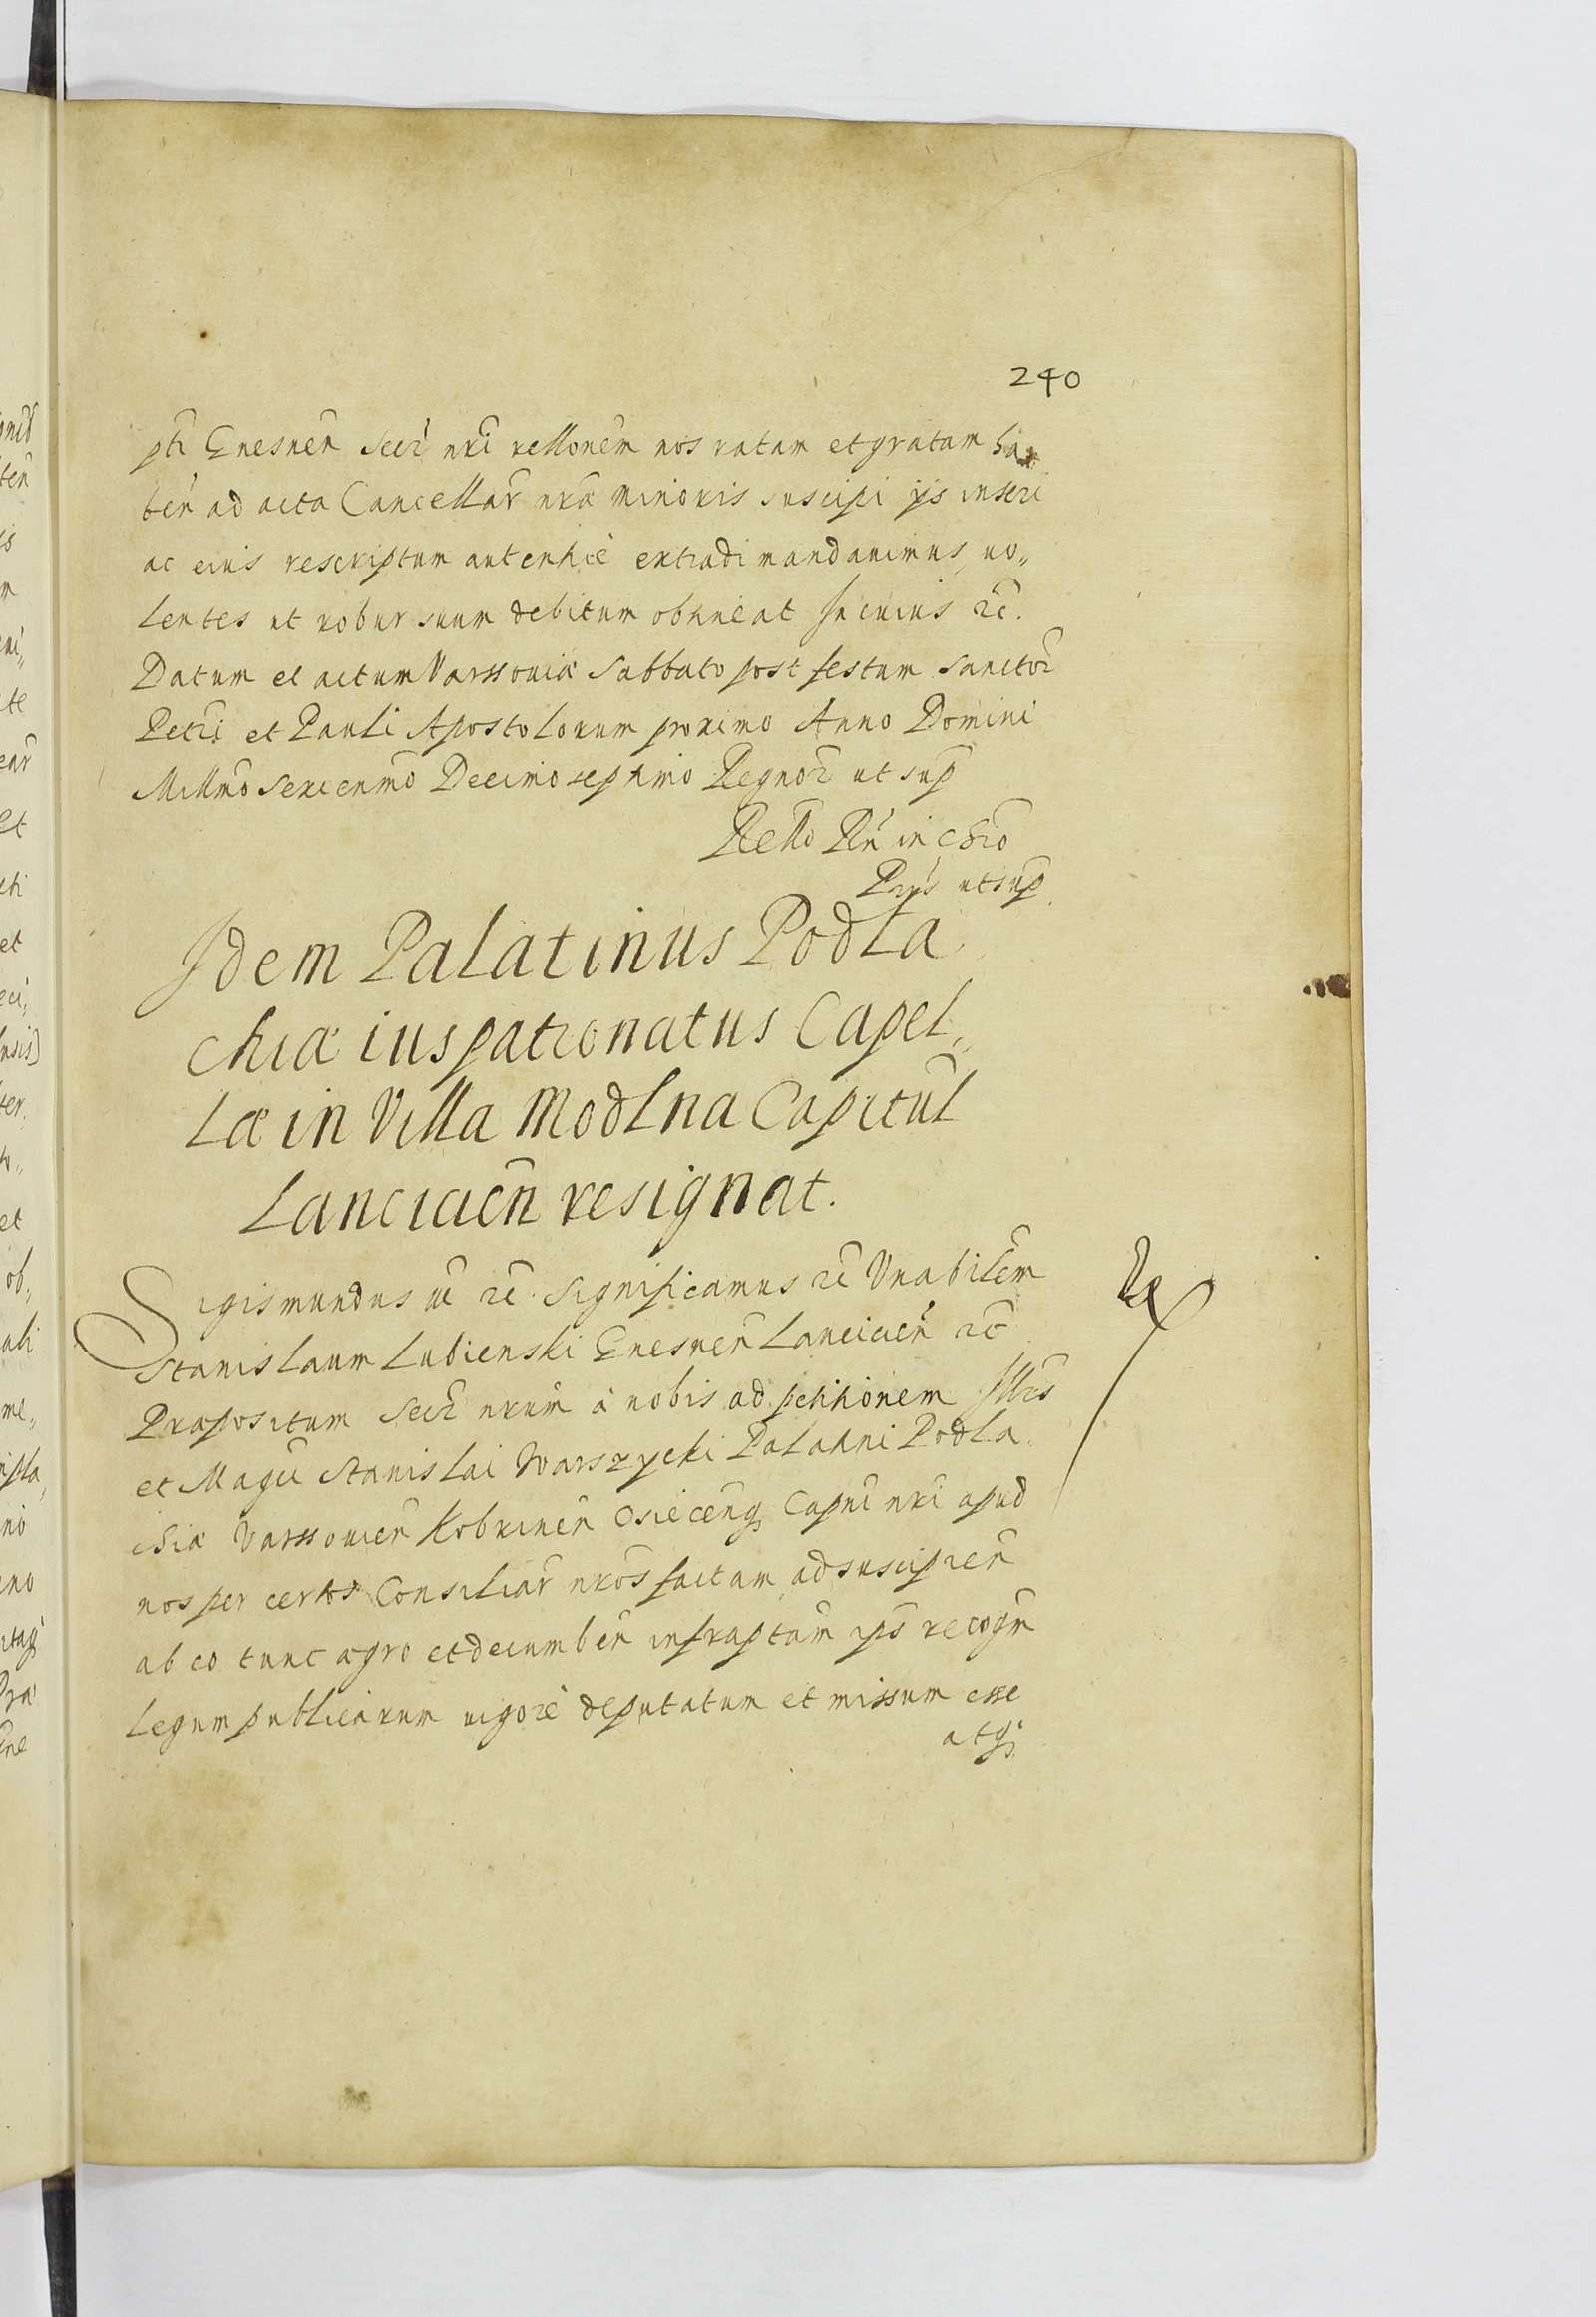 240
pti Gnesnen Secr nri rellonem nos ratam et gratam ha
ben ad acta Cancellar nræ minoris suscipi ijs inseri
ac eius rescriptum autenticè extradi mandauimus, uo„
lentes ut robur suum debitum obtineat In cuius rc.
Datum et actum Varssouiæ Sabbato post festum Sanctor
Petri et Pauli Apostolorum proximo Anno Domini
Millmo Sexcentmo Decimo septimo Regnor ut sup
Rello Rn in Chro
Pris ut sup
Idem Palatinus Podla
chiæ ius patronatus Capel„
læ in Villa Modlna Capitul
Lancicien resignat.
Sigismundus III rc. Significamus rc Vnabilem
Stanislaum Lubienski Gnesnen Lancicien rc
Præpositum Secr nrum à nobis ad petitionem Illris
et Magci Stanislai Warszycki Palatini Podla
chiæ Varssouien Kobrinen Osiecenq Capnei nri apud
nos per certos Consiliar nros factam, ad suscipien
ab eo tunc ægro et decumben infraptam ips recogn
Legum publicarum uigore deputatum et missum esse
atq